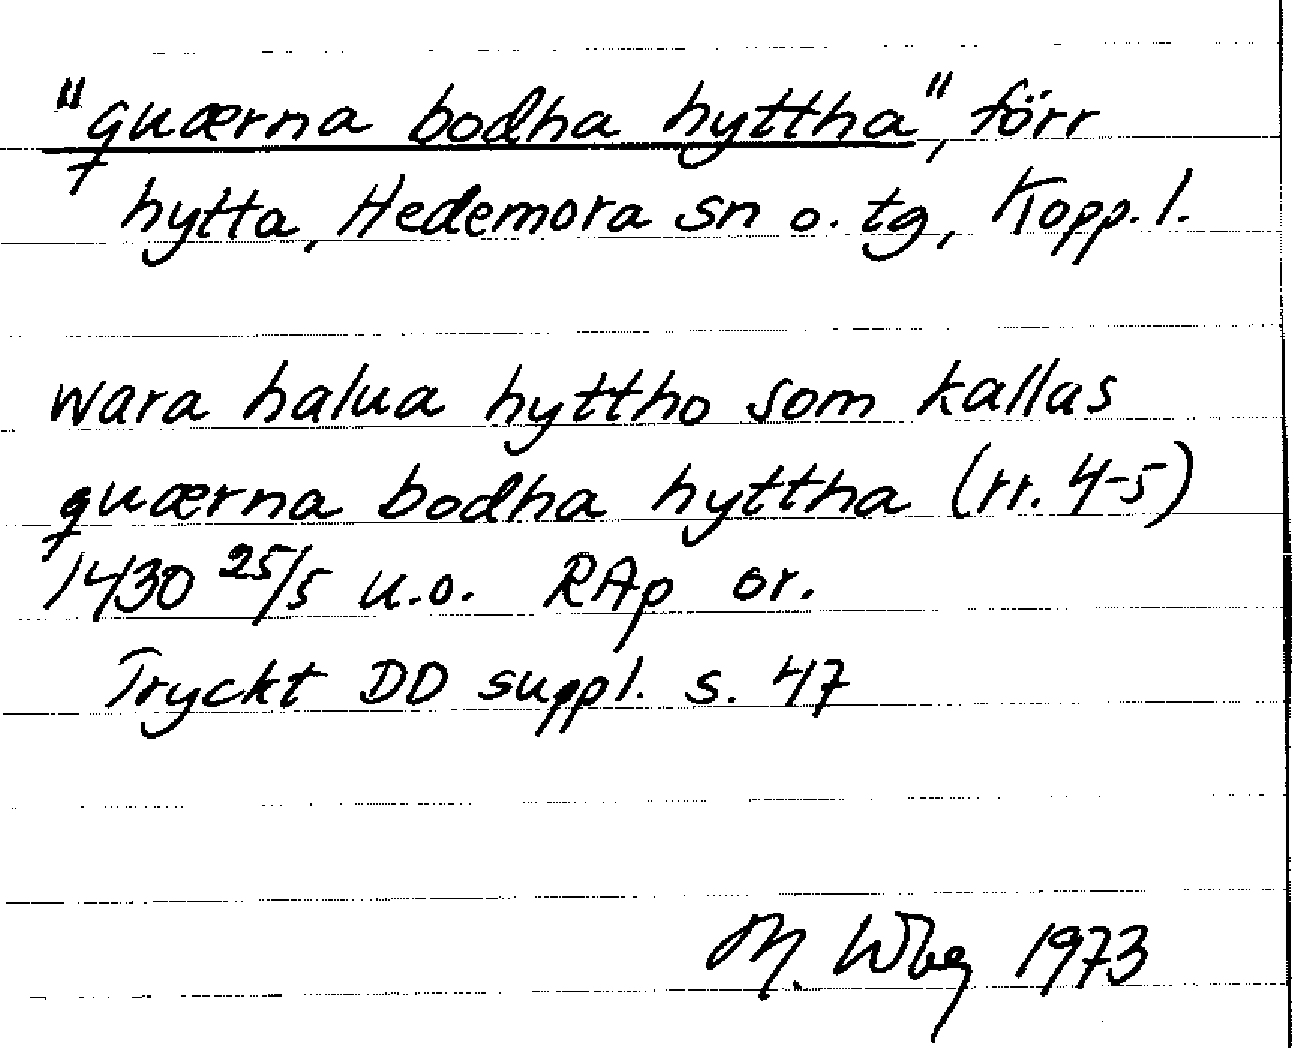 "quærna bodha hyttha", förr
hytta, Hedemora sn o. tg, Kopp. l.
wara halua hyttho som kallas
quærna bodha hyttha (rr. 4-5)
1430 25/5 u.o. RAp or.
Tryckt DD suppl. s. 47
M. Wbg 1973